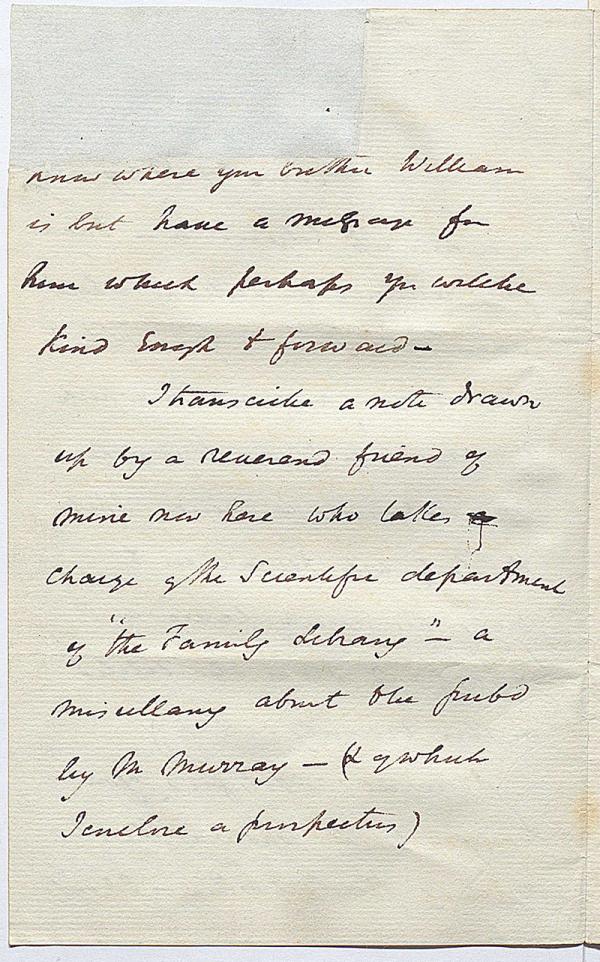 know where your brother William
is but have a message for
him which perhaps you will be
kind enough to forward –
I transcribe a note drawn
up by a reverend friend of
mine now here who takes
charge of the Scientific department
of "the Family Library" – a
miscellany about to be pub'd
by Mr Murray – (& of which
I enclose a prospectus)